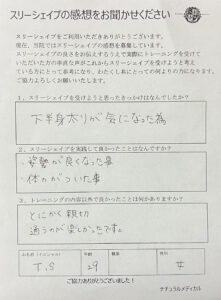 スリーシェイプの感想をお聞かせください
スリーシェイプをご利用いただきありがとうございます。
現在、当院ではスリーシェイプの感想を募集しています。
スリーシェイプの良さをお伝えするうえで実際にトレーニングを受けて
いただいた方の率直な声がこれからスリーシェイプを受けようと考え
ている方にとって参考になり、わたくし共にとっての何よりの力になります。
ご協力よろしくお願いいたします。
1. スリーシェイプを受けようと思ったきっかけはなんでしたか?
下半身太りが気になった為
2. スリーシェイプを実践して良かったことはなんですか?
・姿勢が良くなった事
・体力がついた事
3. トレーニングの内容以外で良かったことは何かありますか?
とにかく親切
通うのが楽しかったです。
お名前(イニシャル)
T.S
年齢
29
職業
性別
女
ご協力ありがとうございました!
ナチュラルメディカル